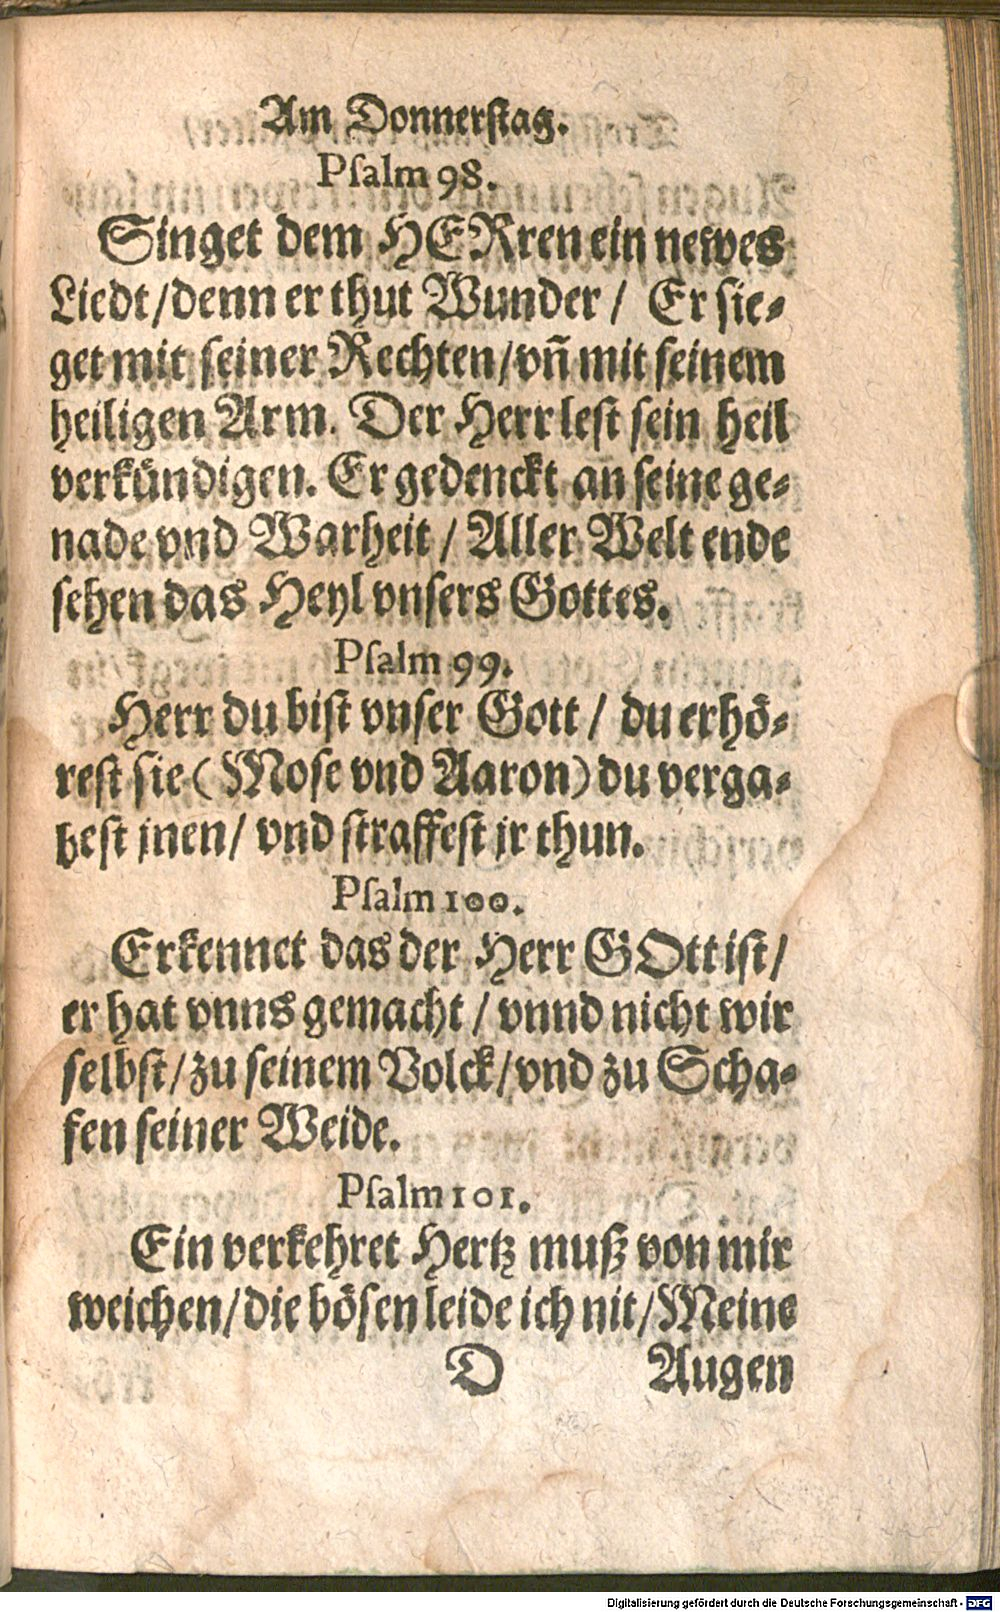 Am Donnerſtag.
Pſalm 98.
Singet dem HERren ein newes
Liedt/denn er thut Wunder/ Er ſie-
get mit ſeiner Rechten/vn̄ mit ſeinem
heiligen Arm. Der Herr leſt ſein heil
verkündigen. Er gedenckt an ſeine ge-
nade vnd Warheit / Aller Welt ende
ſehen das Heyl vnſers Gottes.
Pſalm 99.
Herr du biſt vnſer Gott / du erhö-
reſt ſie (Moſe vnd Aaron) du verga-
beſt jnen/ vnd ſtraffeſt jr thun.
Pſalm 100.
Erkennet das der Herr GOtt iſt/
er hat vnns gemacht / vnnd nicht wir
ſelbſt/zu ſeinem Volck/vnd zu Scha-
fen ſeiner Weide.
Pſalm 101.
Ein verkehret Hertz muß von mir
weichen/die böſen leide ich nit/Meine
D Augen
Digitalisierung gefördert durch die Deutsche Forschungsgemeinschaft - DFG